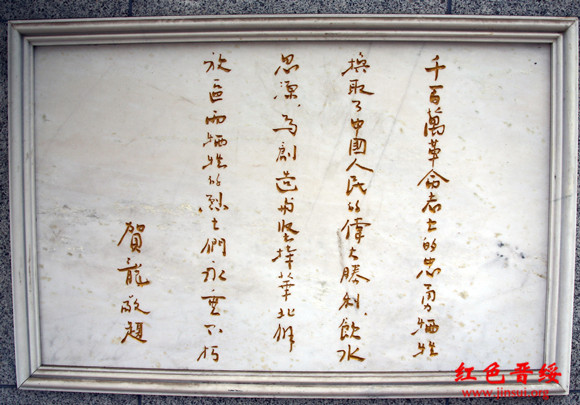 千百萬革命志士的忠勇牺牲
换取了中國人民的偉大勝利,飲水
思源,為創造与坚持華北解
放區而牺牲的烈士們永垂不朽
賀龍敬題
红色晋绥
www.jinsui.org